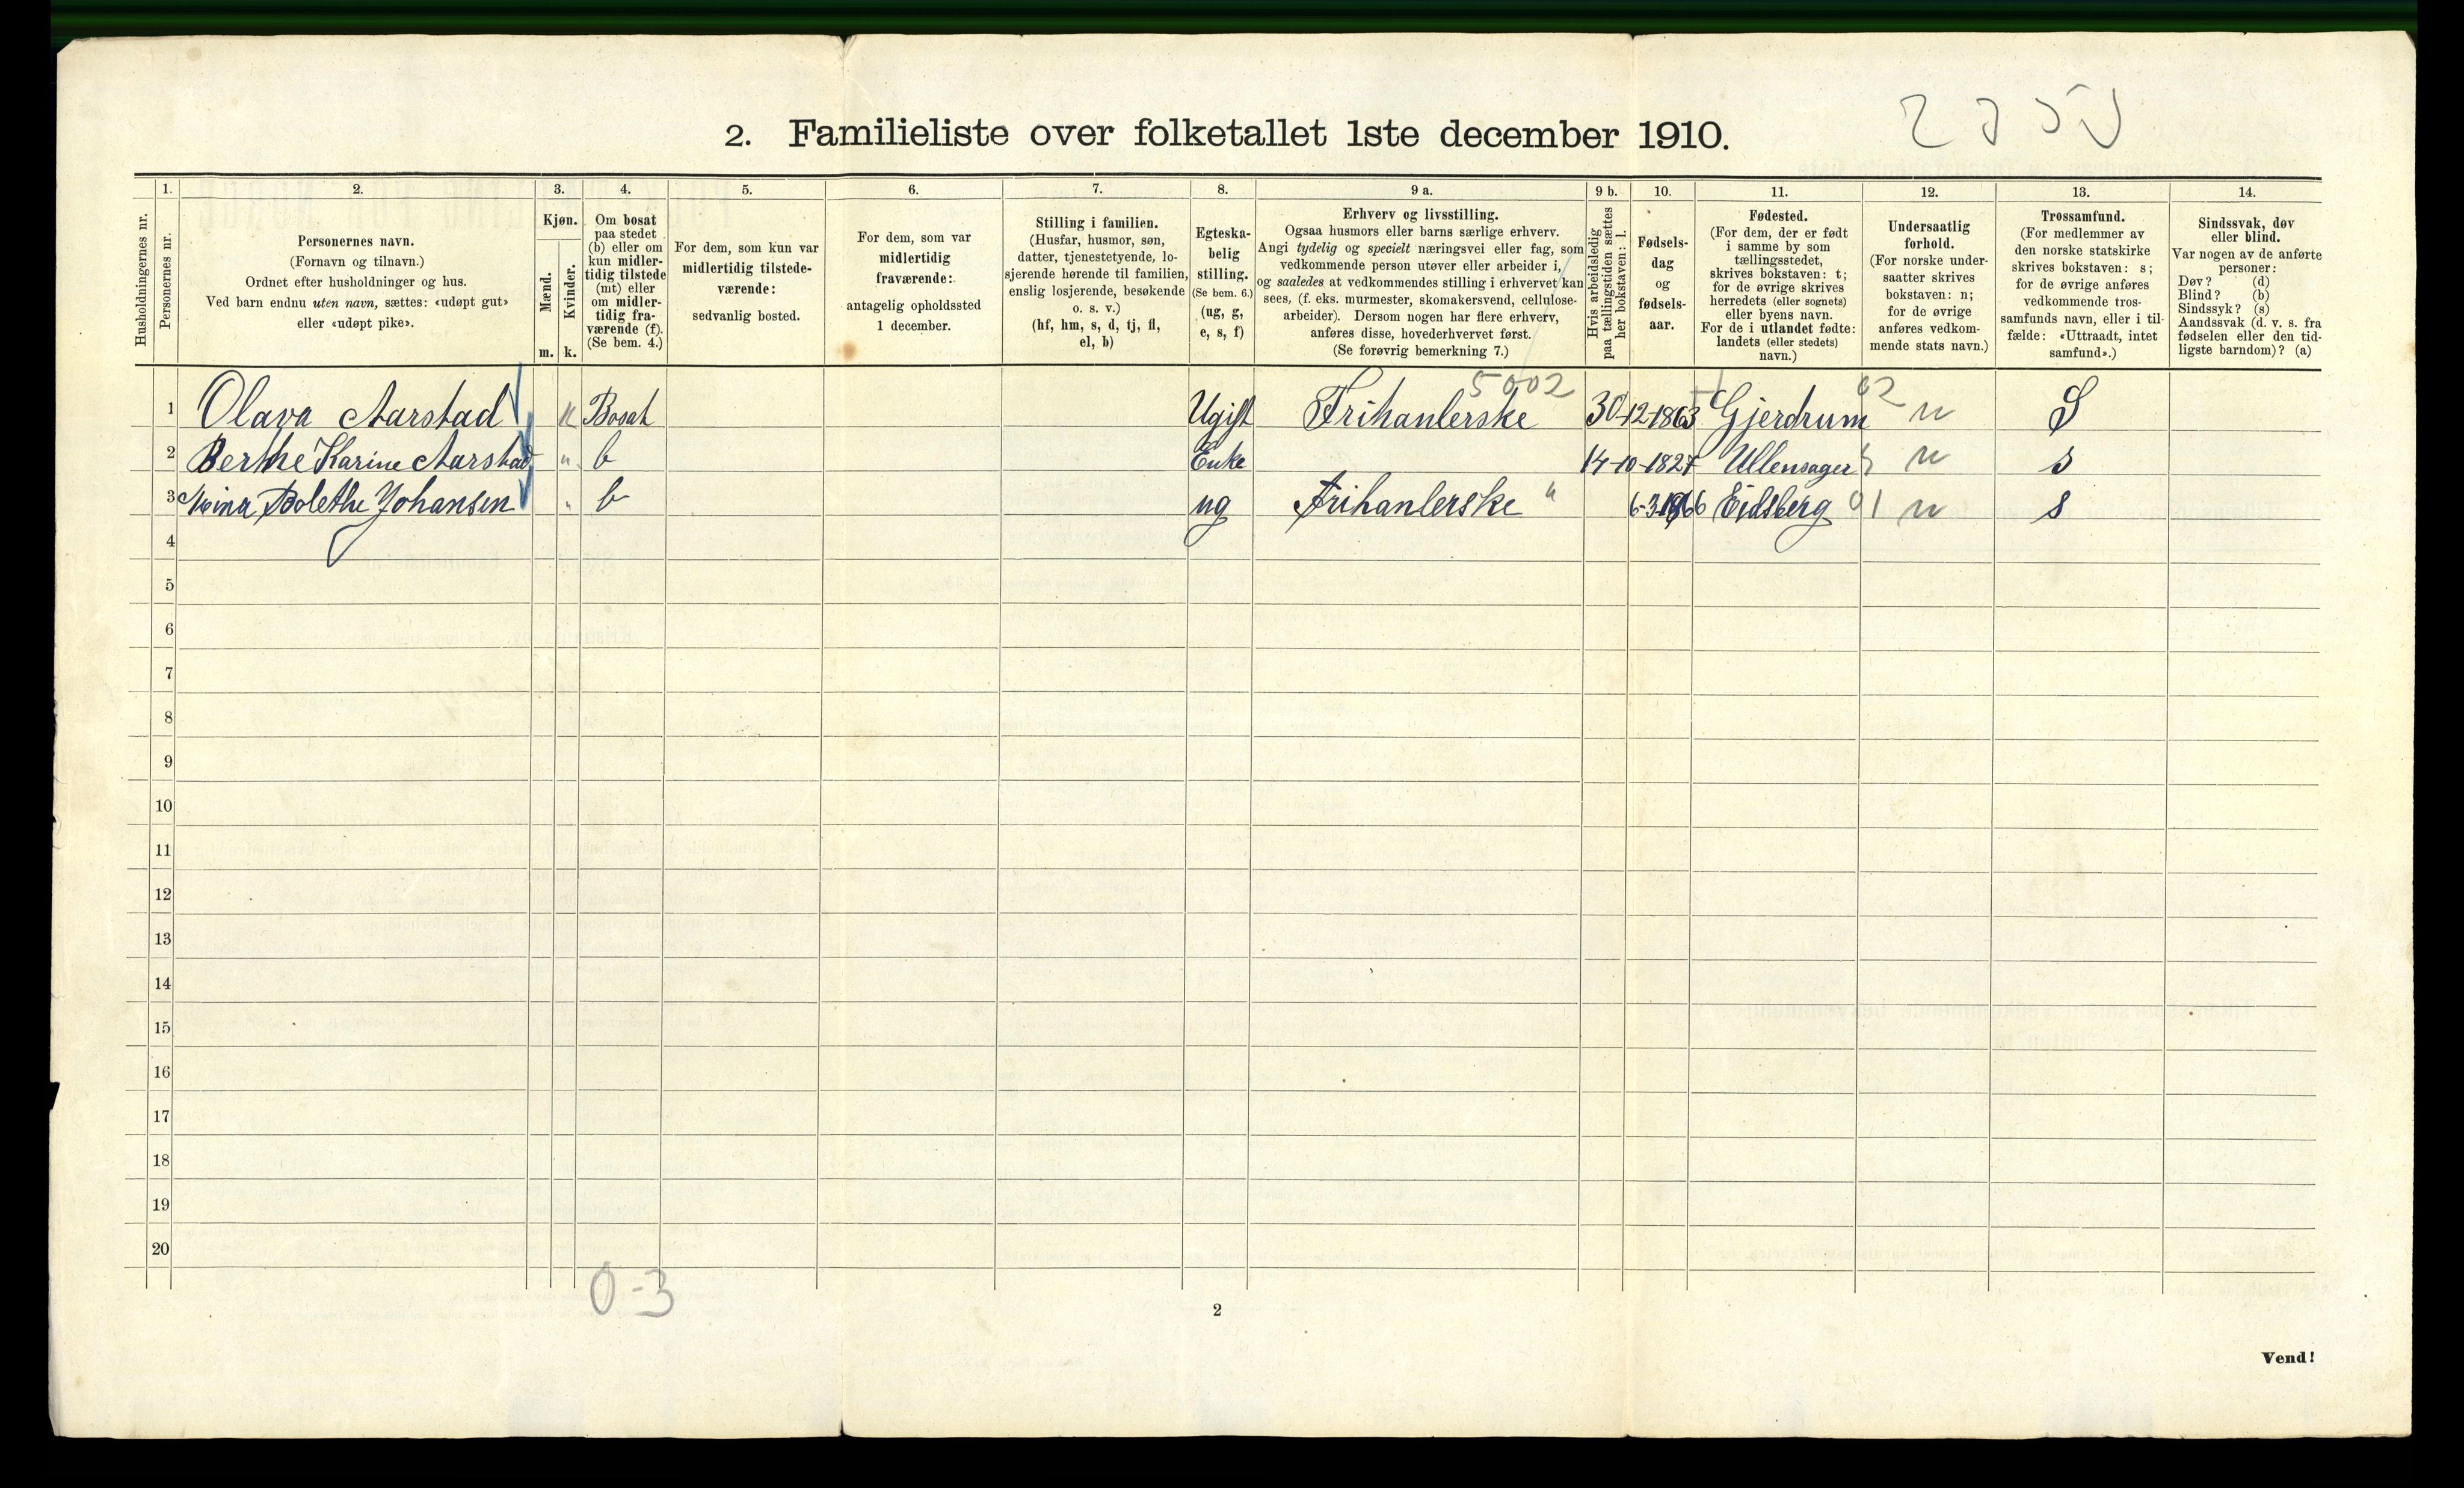 2. Familieliste over folketallet 1ste december 1910.
Husholdningernes nr.
1.
Personernes nr.
2.
Personernes navn.
(Fornavn og tilnavn.)
Ordnet efter husholdninger og hus.
Ved barn endnu uten navn, sættes: «udøpt gut»
eller «udøpt pike».
3.
Kjøn.
Mænd.
m.
Kvinder.
k.
4.
Om bosat
paa stedet
(b) eller om
kun midler-
tidig tilstede
(mt) eller
om midler-
tidig fra-
værende (f).
(Se bem. 4.)
5.
For dem, som kun var
midlertidig tilstede-
værende:
sedvanlig bosted.
6.
For dem, som var
midlertidig
fraværende:
antagelig opholdssted
1 december.
7.
Stilling i familien.
(Husfar, husmor, søn,
datter, tjenestetyende, lo-
sjerende hørende til familien,
enslig losjerende, besøkende
o. s. v.)
(hf, hm, s, d, tj, fl,
el, b)
8.
Egteska-
belig
stilling.
(Se bem. 6.)
(ug, g,
e, s, f)
9 a.
Erhverv og livsstilling.
Ogsaa husmors eller barns særlige erhverv.
Angi tydelig og specielt næringsvei eller fag, som
vedkommende person utøver eller arbeider i,
og saaledes at vedkommendes stilling i erhvervet kan
sees, (f. eks. murmester, skomakersvend, cellulose-
arbeider). Dersom nogen har flere erhverv,
anføres disse, hovederhvervet først.
(Se forøvrig bemerkning 7.)
9 b.
Hvis arbeidsledig
paa tællingstiden sættes
her bokstaven: l.
10.
Fødsels-
dag
og
fødsels-
aar.
11.
Fødested.
(For dem, der er født
i samme by som
tællingsstedet,
skrives bokstaven: t;
for de øvrige skrives
herredets (eller sognets)
eller byens navn.
For de i utlandet fødte:
landets (eller stedets)
navn.)
12.
Undersaatlig
forhold.
(For norske under-
saatter skrives
bokstaven: n;
for de øvrige
anføres vedkom-
mende stats navn.)
13.
Trossamfund.
(For medlemmer av
den norske statskirke
skrives bokstaven: s;
for de øvrige anføres
vedkommende tros-
samfunds navn, eller i til-
fælde: «Uttraadt, intet
samfund».)
14.
Sindssvak, døv
eller blind.
Var nogen av de anførte
personer:
Døv? (d)
Blind? (b)
Sindssyk? (s)
Aandssvak (d. v. s. fra
fødselen eller den tid-
ligste barndom)? (a)
5002 02
1 Olava Aarstad k Bosat Ugift Frihanlerske 30-12-1863 Gjerdrum n S
2 Berthe Karine Aarstad " b Enke 14-10-1827 Ullensager n s
3 Bolethe Johansen " b ug Frihanlerske " 6-3-1866 Eidsberg 01 n s
4
5
6
7
8
9
10
11
12
13
14
15
16
17
18
19
20
0-3
2
Vend!